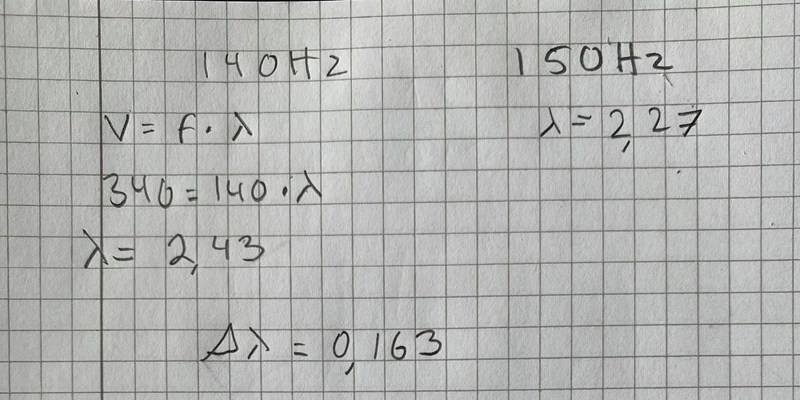 140Hz
150Hz
V = f · λ
λ = 2,27
340 = 140 · λ
λ = 2,43
Δλ = 0,163